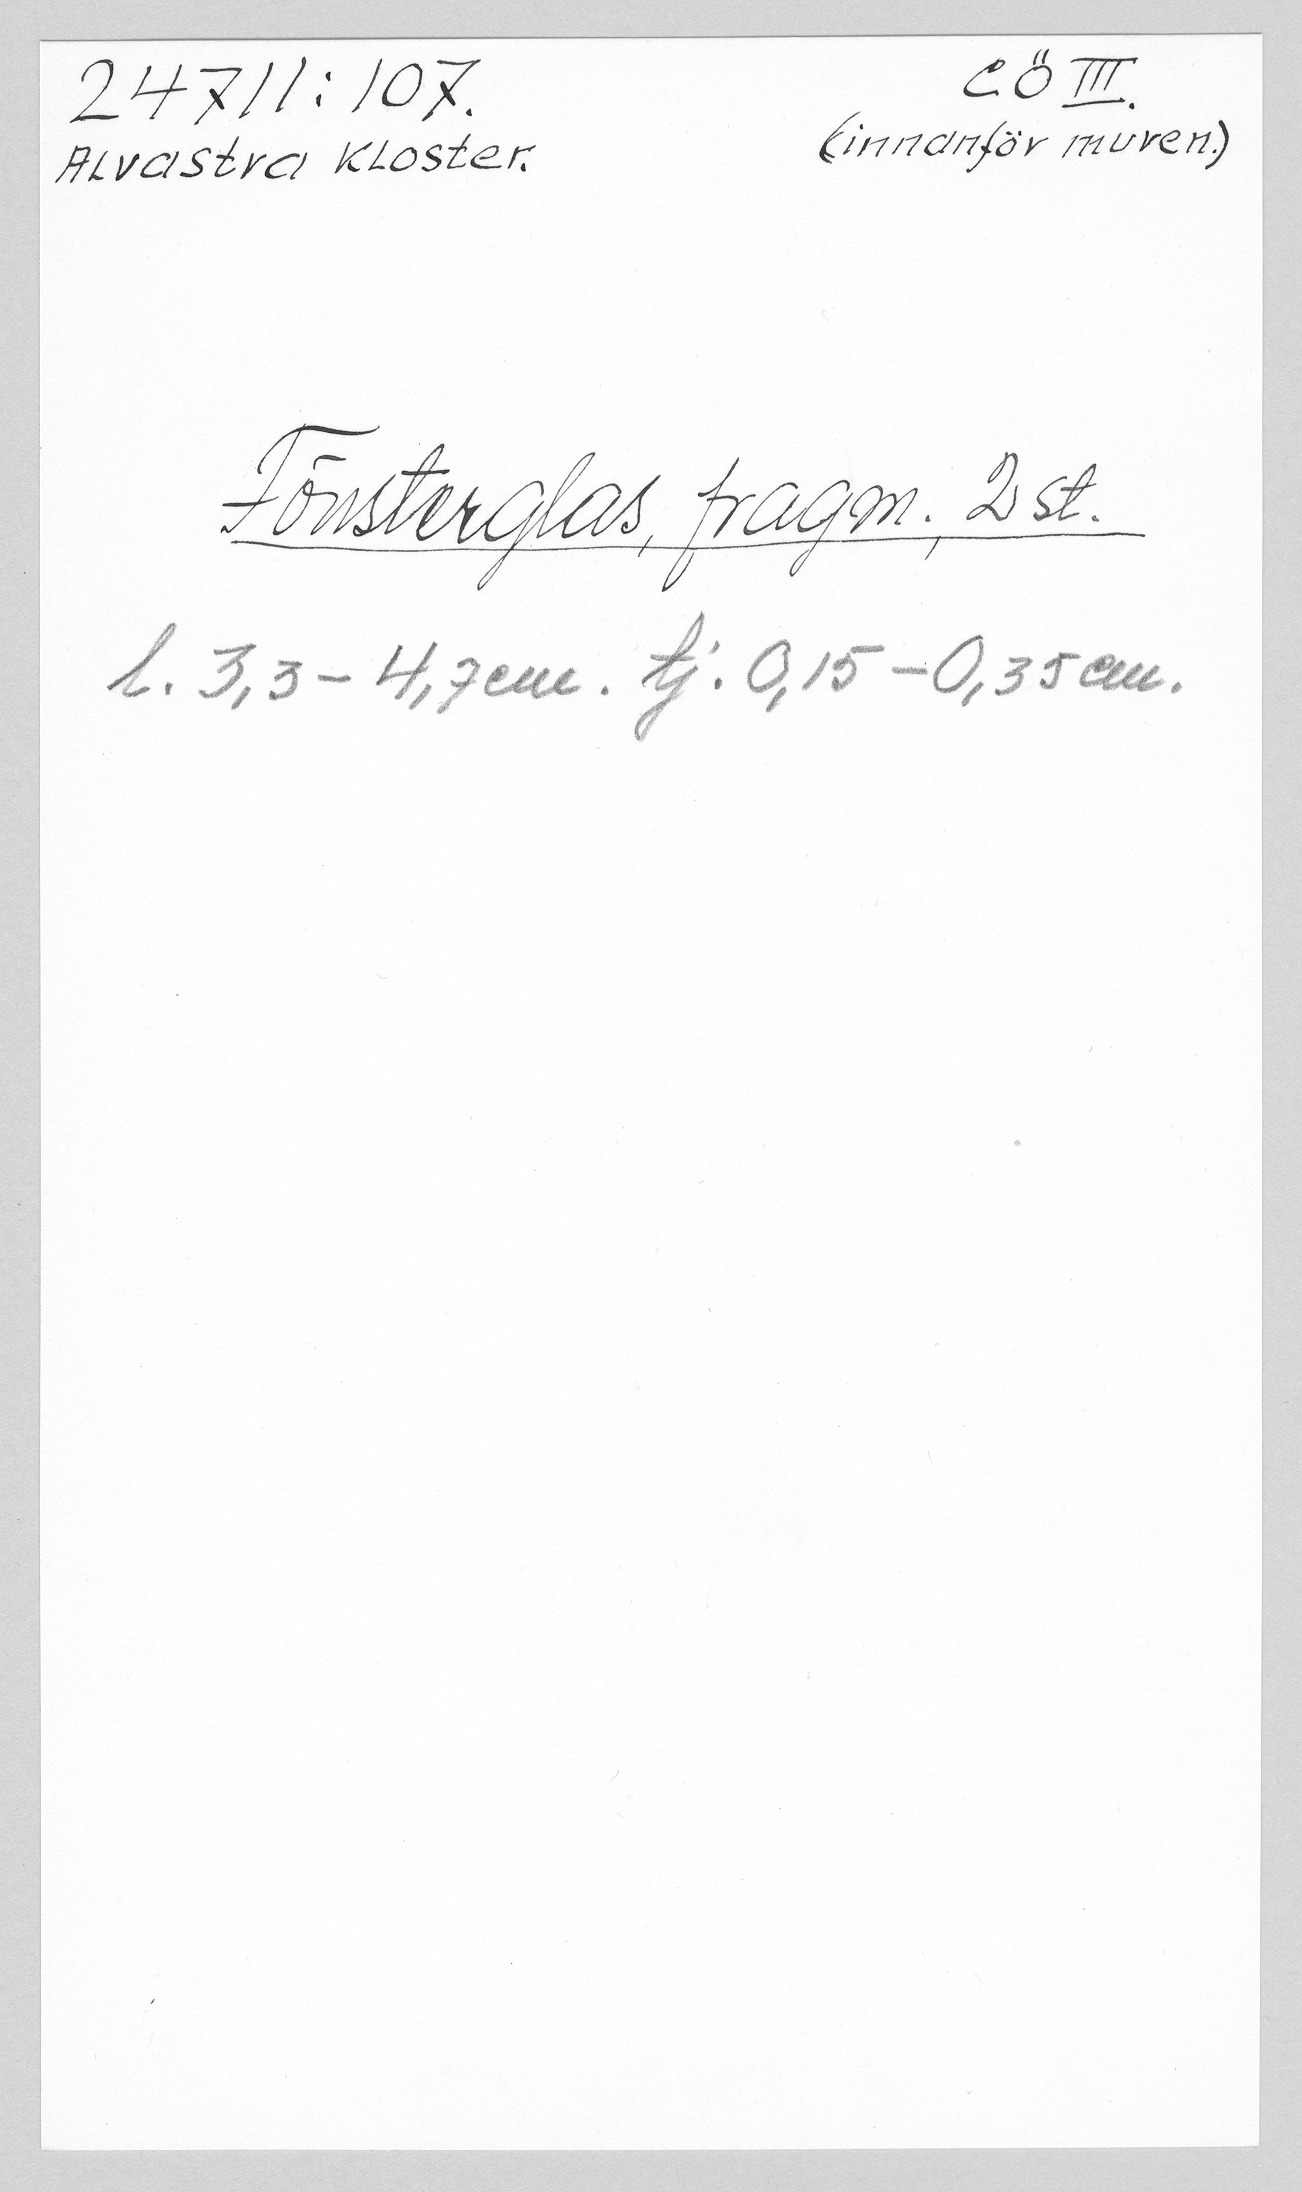 24711:107.
Alvastra Kloster.
CÖ III.
(innanför muren.)
Fönsterglas, fragm., 2 st.
l. 3,3-4,7cm. tj. 0,15-0,35cm.